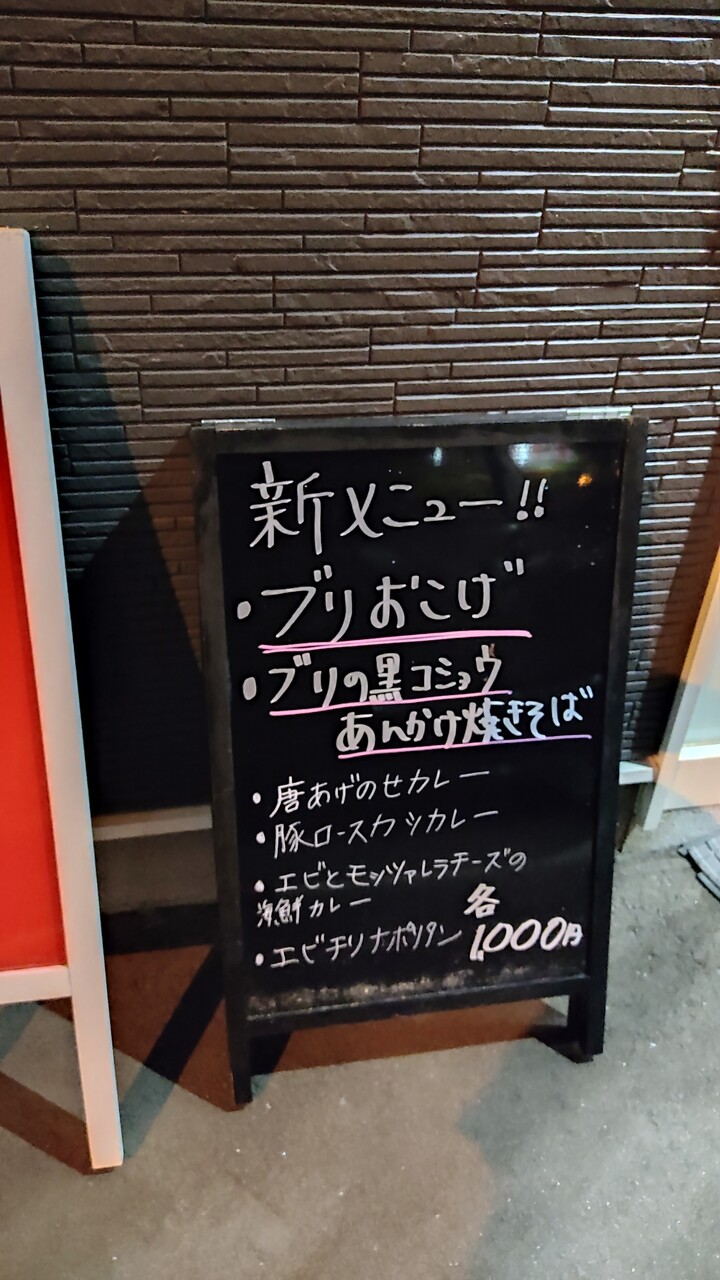 新メニュー!!
・ブリおこげ
・ブリの黒コショウ
あんかけ焼きそば
・唐あげのせカレー
・豚ロースカツカレー
・エビとモッツァレラチーズの
海鮮カレー
・エビチリナポリタン
各
1,000円